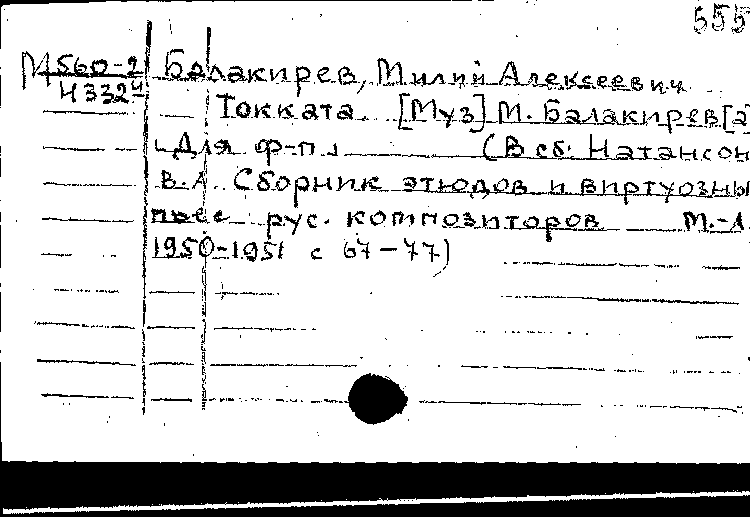 555
М 560-2 Балакирев, Милий Алексеевич
Ч 332 Ч Токката. [Муз] М. Балакирев [а
Для ф-п. (В сб. Натансон
В.А. Сборник этюдов и виртуозны
пьес рус. композиторов М.-Л.
1950-1951 с 67-77)